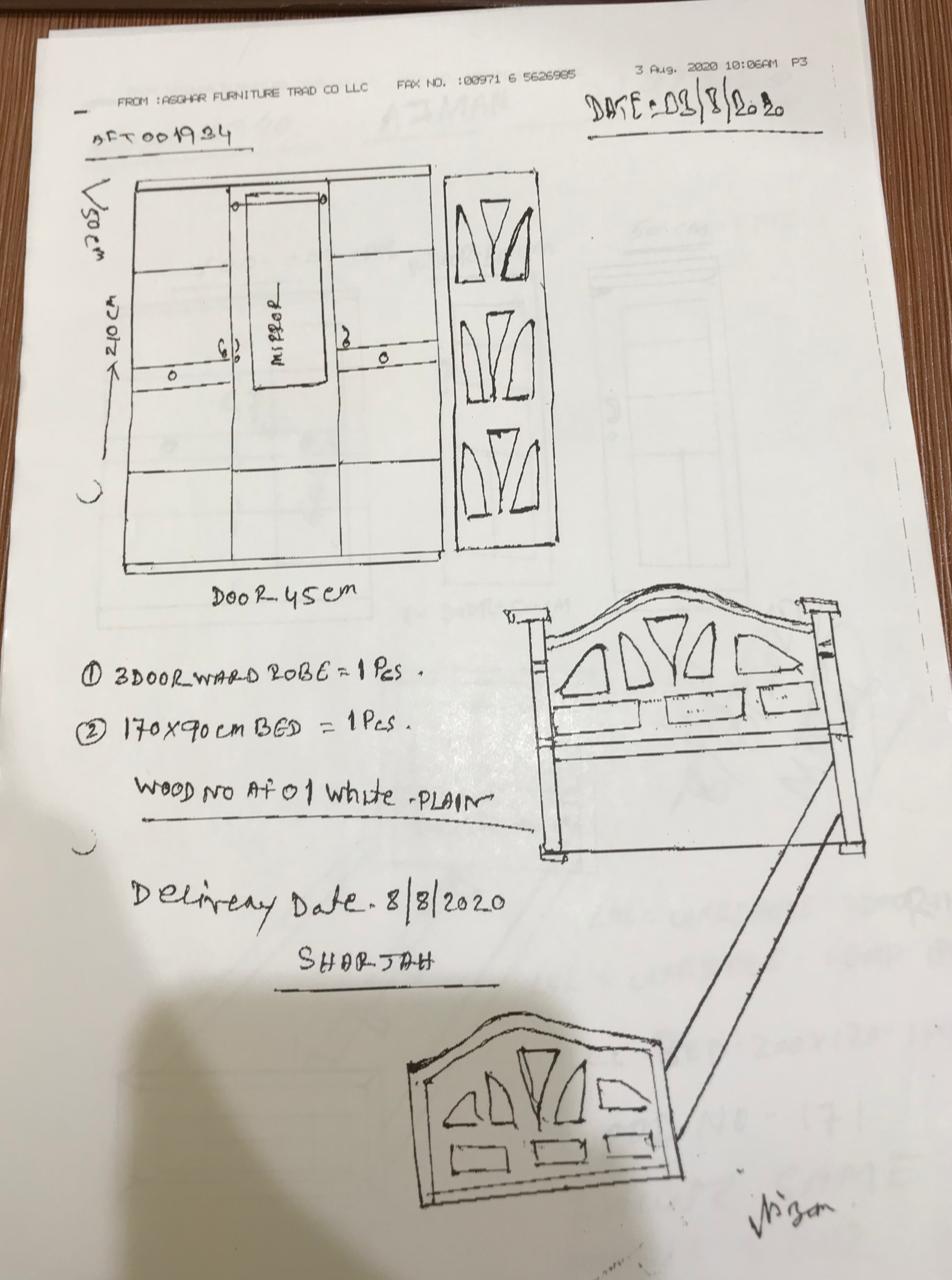 FROM :ASGHAR FURNITURE TRAD CO LLC FAX NO. :00971 6 5626985 3 Aug. 2020 10:06AM P3
DATE=03/8/2020
AFT 001934
50cm
210cm
MIRROR
DOOR 45cm
① 3DOOR WARD ROBE = 1 Pcs.
② 170X90cm BED = 1Pcs.
WOOD NO Af 01 White -PLAIN
Delivery Date. 8/8/2020
SHARJAH
Nizam